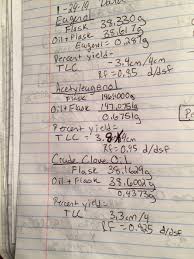 1-24-14
Eugenol
Flask 38.330g
Oil+Flask 38.617g
Eugenol = 0.287g
Percent yield =
TLC = 3.4cm/4cm
RF = 0.85 d/dsf
Acetyleugenol
Flask
Oil+Flask 147.0751g
0.6751g
Percent yield =
TLC =
RF = 0.95 d/dsf
Crude Clove Oil
Flask 38.1629g
Oil+Flask 38.6002g
0.4373g
Percent yield =
TLC 3.3cm/4
RF = 0.825 d/dsf